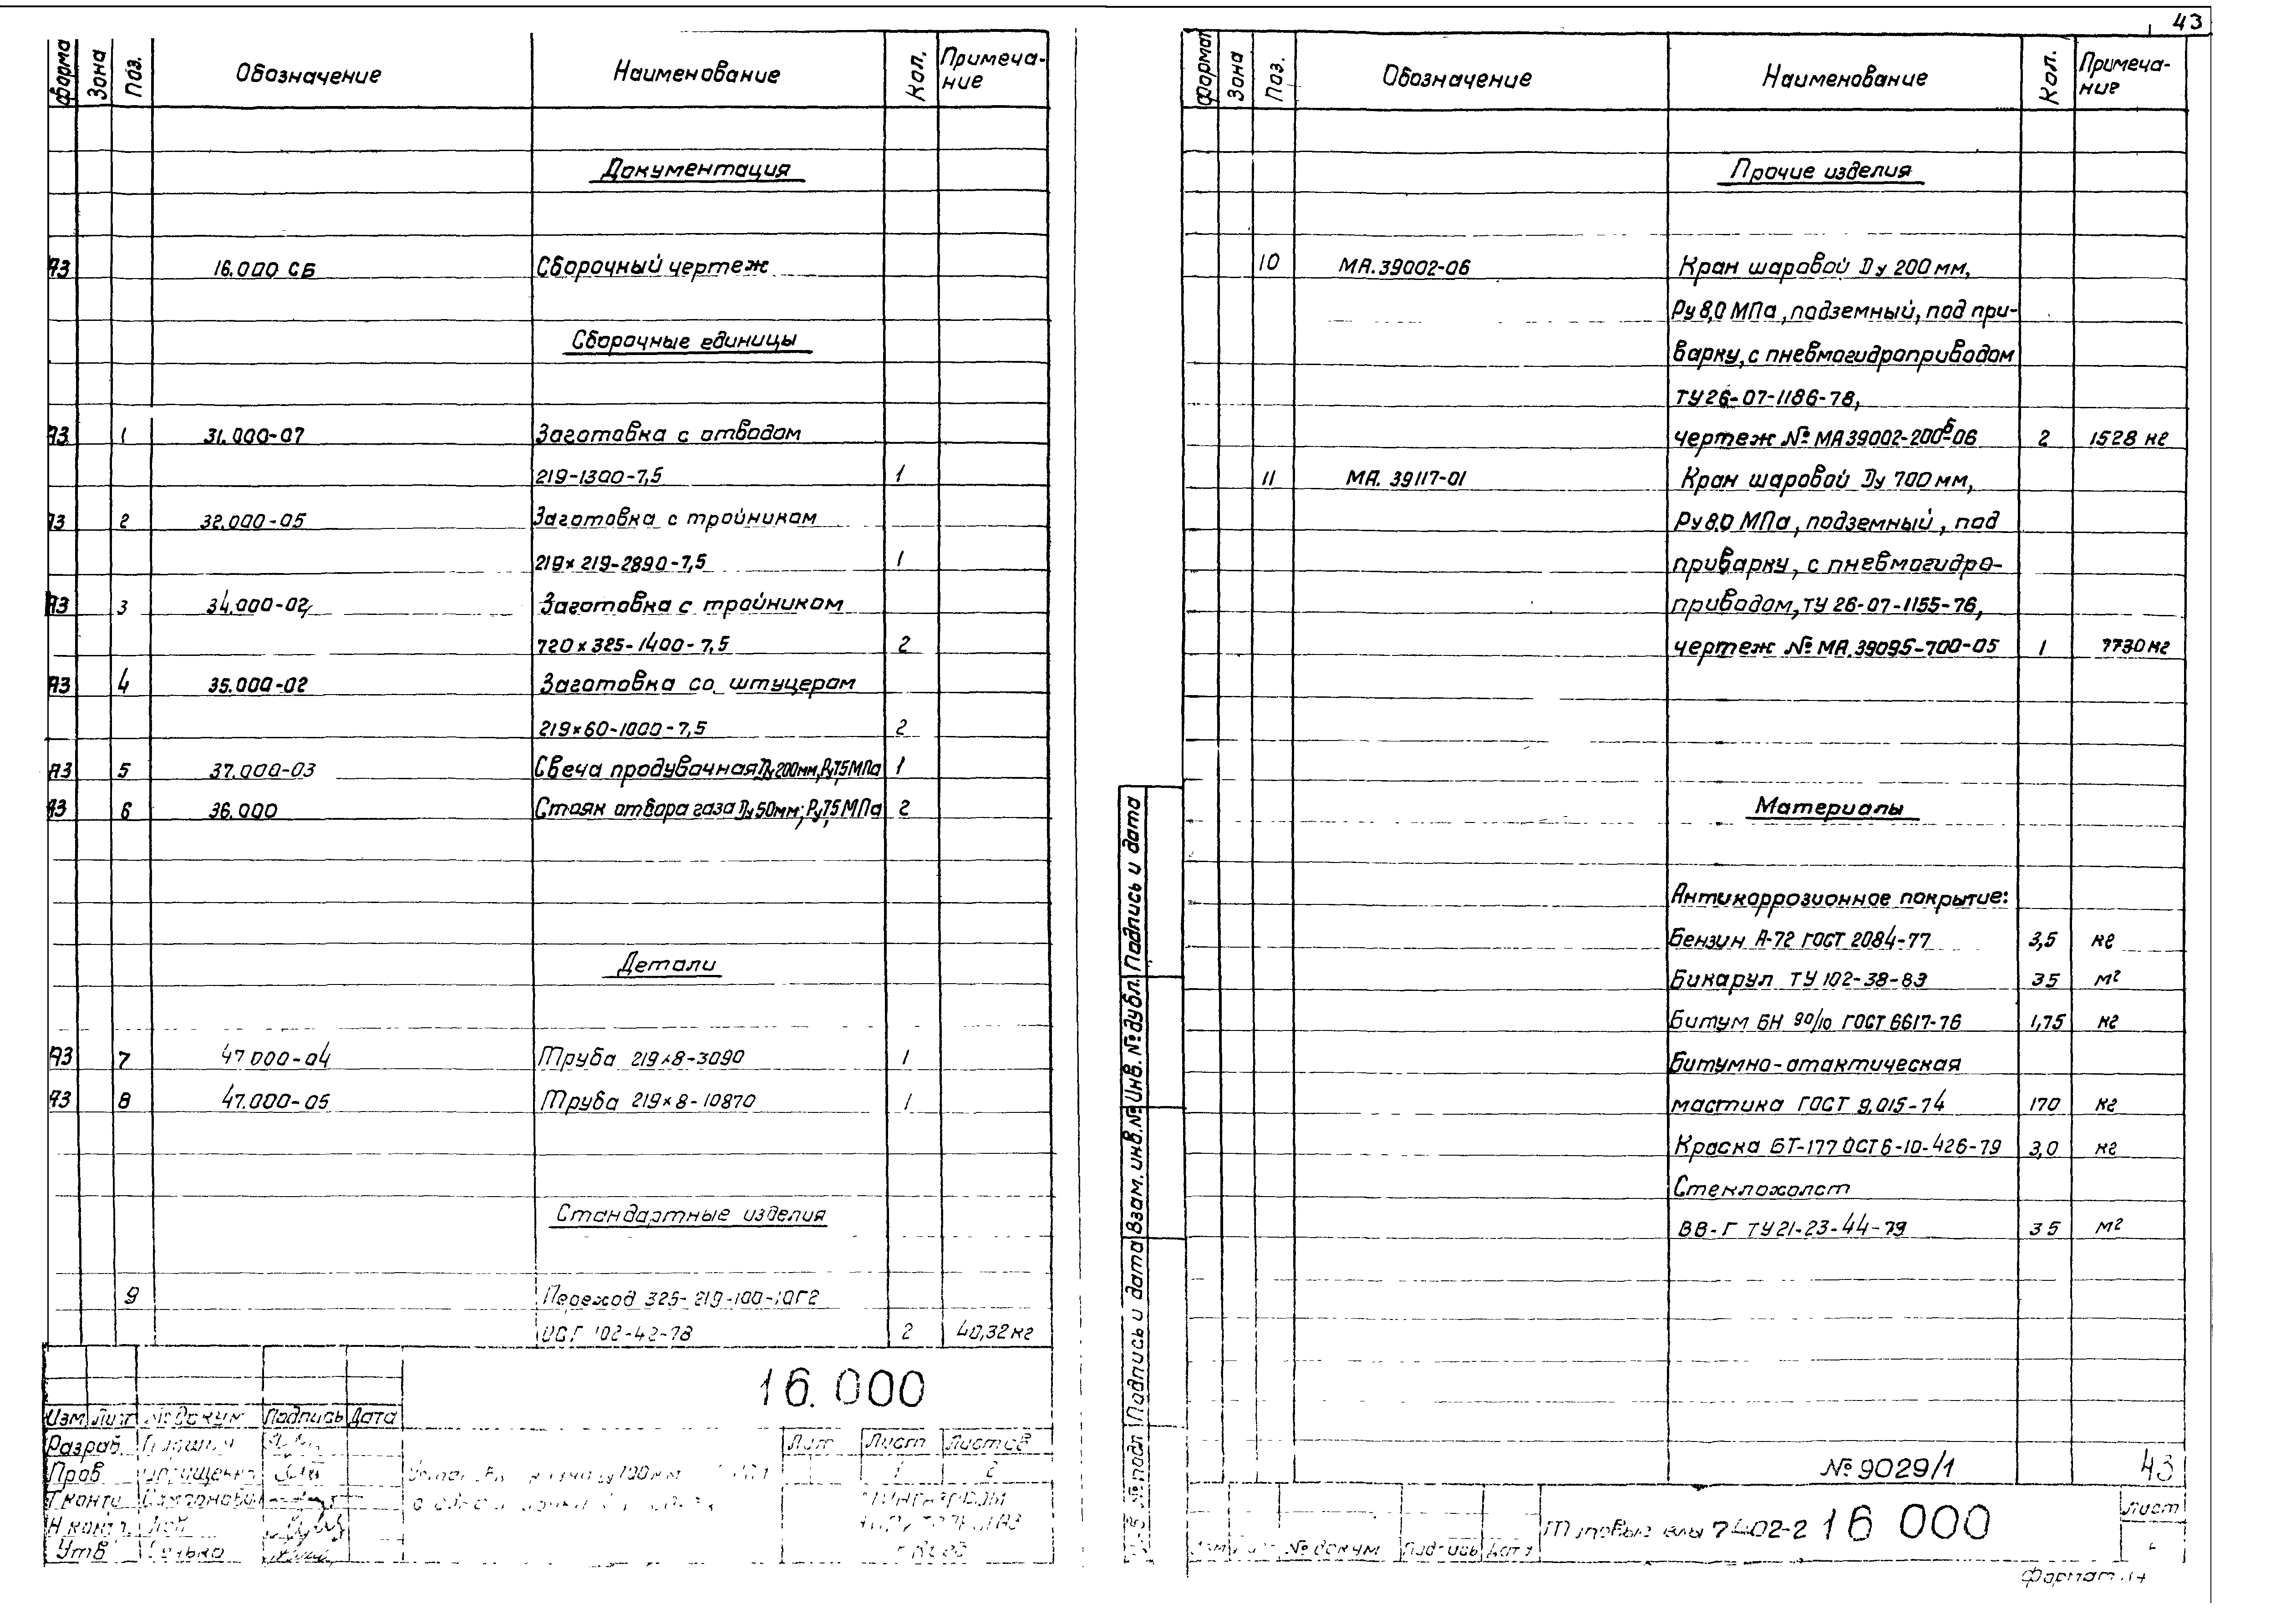 43
Формат Зона Поз. Обозначение Наименование Кол. Примеча-
ние
Документация
А3 16.000 СБ Сборочный чертеж
Сборочные единицы
А3 1 31.000-07 Заготовка с отводом
219-1300-7,5 1
А3 2 32.000-05 Заготовка с тройником
219×219-2890-7,5 1
А3 3 34.000-02 Заготовка с тройником
720×325-1400-7,5 2
А3 4 35.000-02 Заготовка со штуцером
219×60-1000-7,5 2
А3 5 37.000-03 Свеча продувочная Ду200мм, Ру7,5МПа 1
А3 6 36.000 Стояк отбора газа Ду50мм; Ру7,5МПа 2
Детали
А3 7 47.000-04 Труба 219×8-3090 1
А3 8 47.000-05 Труба 219×8-10870 1
Стандартные изделия
9 Переход 325-219-100-10Г2
ОСТ 102-42-78 2 40,32кг
16.000
Изм Лист № докум Подпись Дата
Разраб.
Пров
Т.контр
Н контр.
Утв
Лит Лист Листов
1 2
Формат Зона Поз. Обозначение Наименование Кол. Примеча-
ние
Прочие изделия
10 МА.39002-06 Кран шаровой Ду 200мм,
Ру8,0 МПа, подземный, под при-
варку, с пневмогидроприводом
ТУ26-07-1186-78,
чертеж № МА39002-200Б-06 2 1528 кг
11 МА. 39117-01 Кран шаровой Ду 700мм,
Ру8,0 МПа, подземный, под
приварку, с пневмогидро-
приводом, ТУ 26-07-1155-76,
чертеж № МА.39095-700-05 1 7730 кг
Материалы
Антикоррозионное покрытие:
Бензин А-72 ГОСТ 2084-77 3,5 кг
Бикарул ТУ 102-38-83 35 м²
Битум БН 90/10 ГОСТ 6617-76 1,75 кг
Битумно-атактическая
мастика ГОСТ 9.015-74 170 кг
Краска БТ-177 ОСТ6-10-426-79 3,0 кг
Стеклохолст
ВВ-Г ТУ21-23-44-79 35 м²
Подпись и дата
Инв. № дубл.
Взам. инв. №
Подпись и дата
№ подл
№ 9029/1 43
7402-2 16 000
Лист
№ докум Подпись Дата
Формат